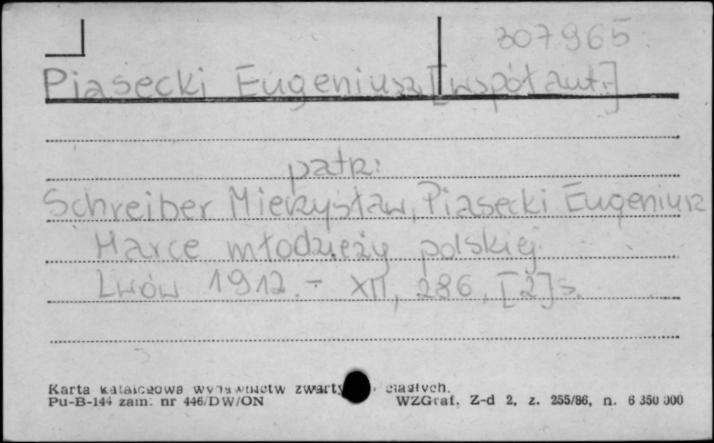 307965
Piasecki Eugeniusz [współaut.]
patrz:
Schreiber Mieczysław, Piasecki Eugeniusz
Harce młodzieży polskiej.
Lwów 1912. - XII, 286, [2] s.
Karta katalogowa wydawnictw zwartych ciągłych.
Pu-B-144 zam. nr 446/DW/ON WZGraf. Z-d 2, z. 255/86, n. 6 350 000